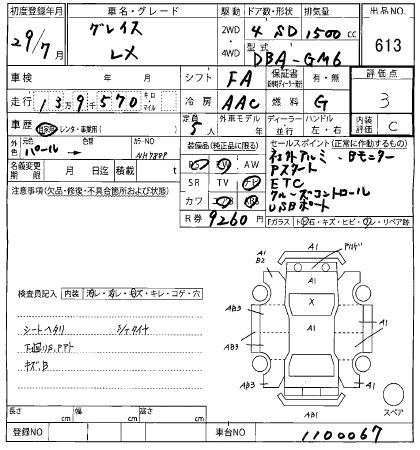 初度登録年月 車名・グレード 駆動 ドア数・形状 排気量 出品NO.
29/7月 グレイス LX 2WD 4WD 4 SD 1500cc 613
型式 DBA-GM6
車検 年 月 シフト FA 保証書 有・無 評価点 3
走行 13万9千570 キロ・マイル 冷房 AAC 燃料 G
車歴 自家用 レンタ・事業用( ) 定員 5人 外車モデル 年 ディーラー・並行 ハンドル 左・右 内装評価 C
外色 元色 パール → 色替 カラーNO NH788P
名義変更期限 月 日 積載 t
装備品(純正品に限る)
PS PW AW
SR TV ナビ
カワ エアB
R券 9260円
セールスポイント(正常に作動するもの)
社外アルミ、Bモニター
Pスタート
ETC
クルーズコントロール
USBポート
Fガラス トビ石・キズ・ヒビ・ワレ・リペア跡
注意事項(欠品・修復・不具合箇所および状態)
検査員記入 内装 汚レ・コレ・キズ・キレ・コゲ・穴
シートヘタリ
下廻りS,Pアト
キズ,B
A1
B2
A1
A1
X
A1
AB3
AB3
A1
A1
AB3
A1
AB1
スペア
長さ cm 幅 cm 高さ cm
登録NO 車台NO 1100067